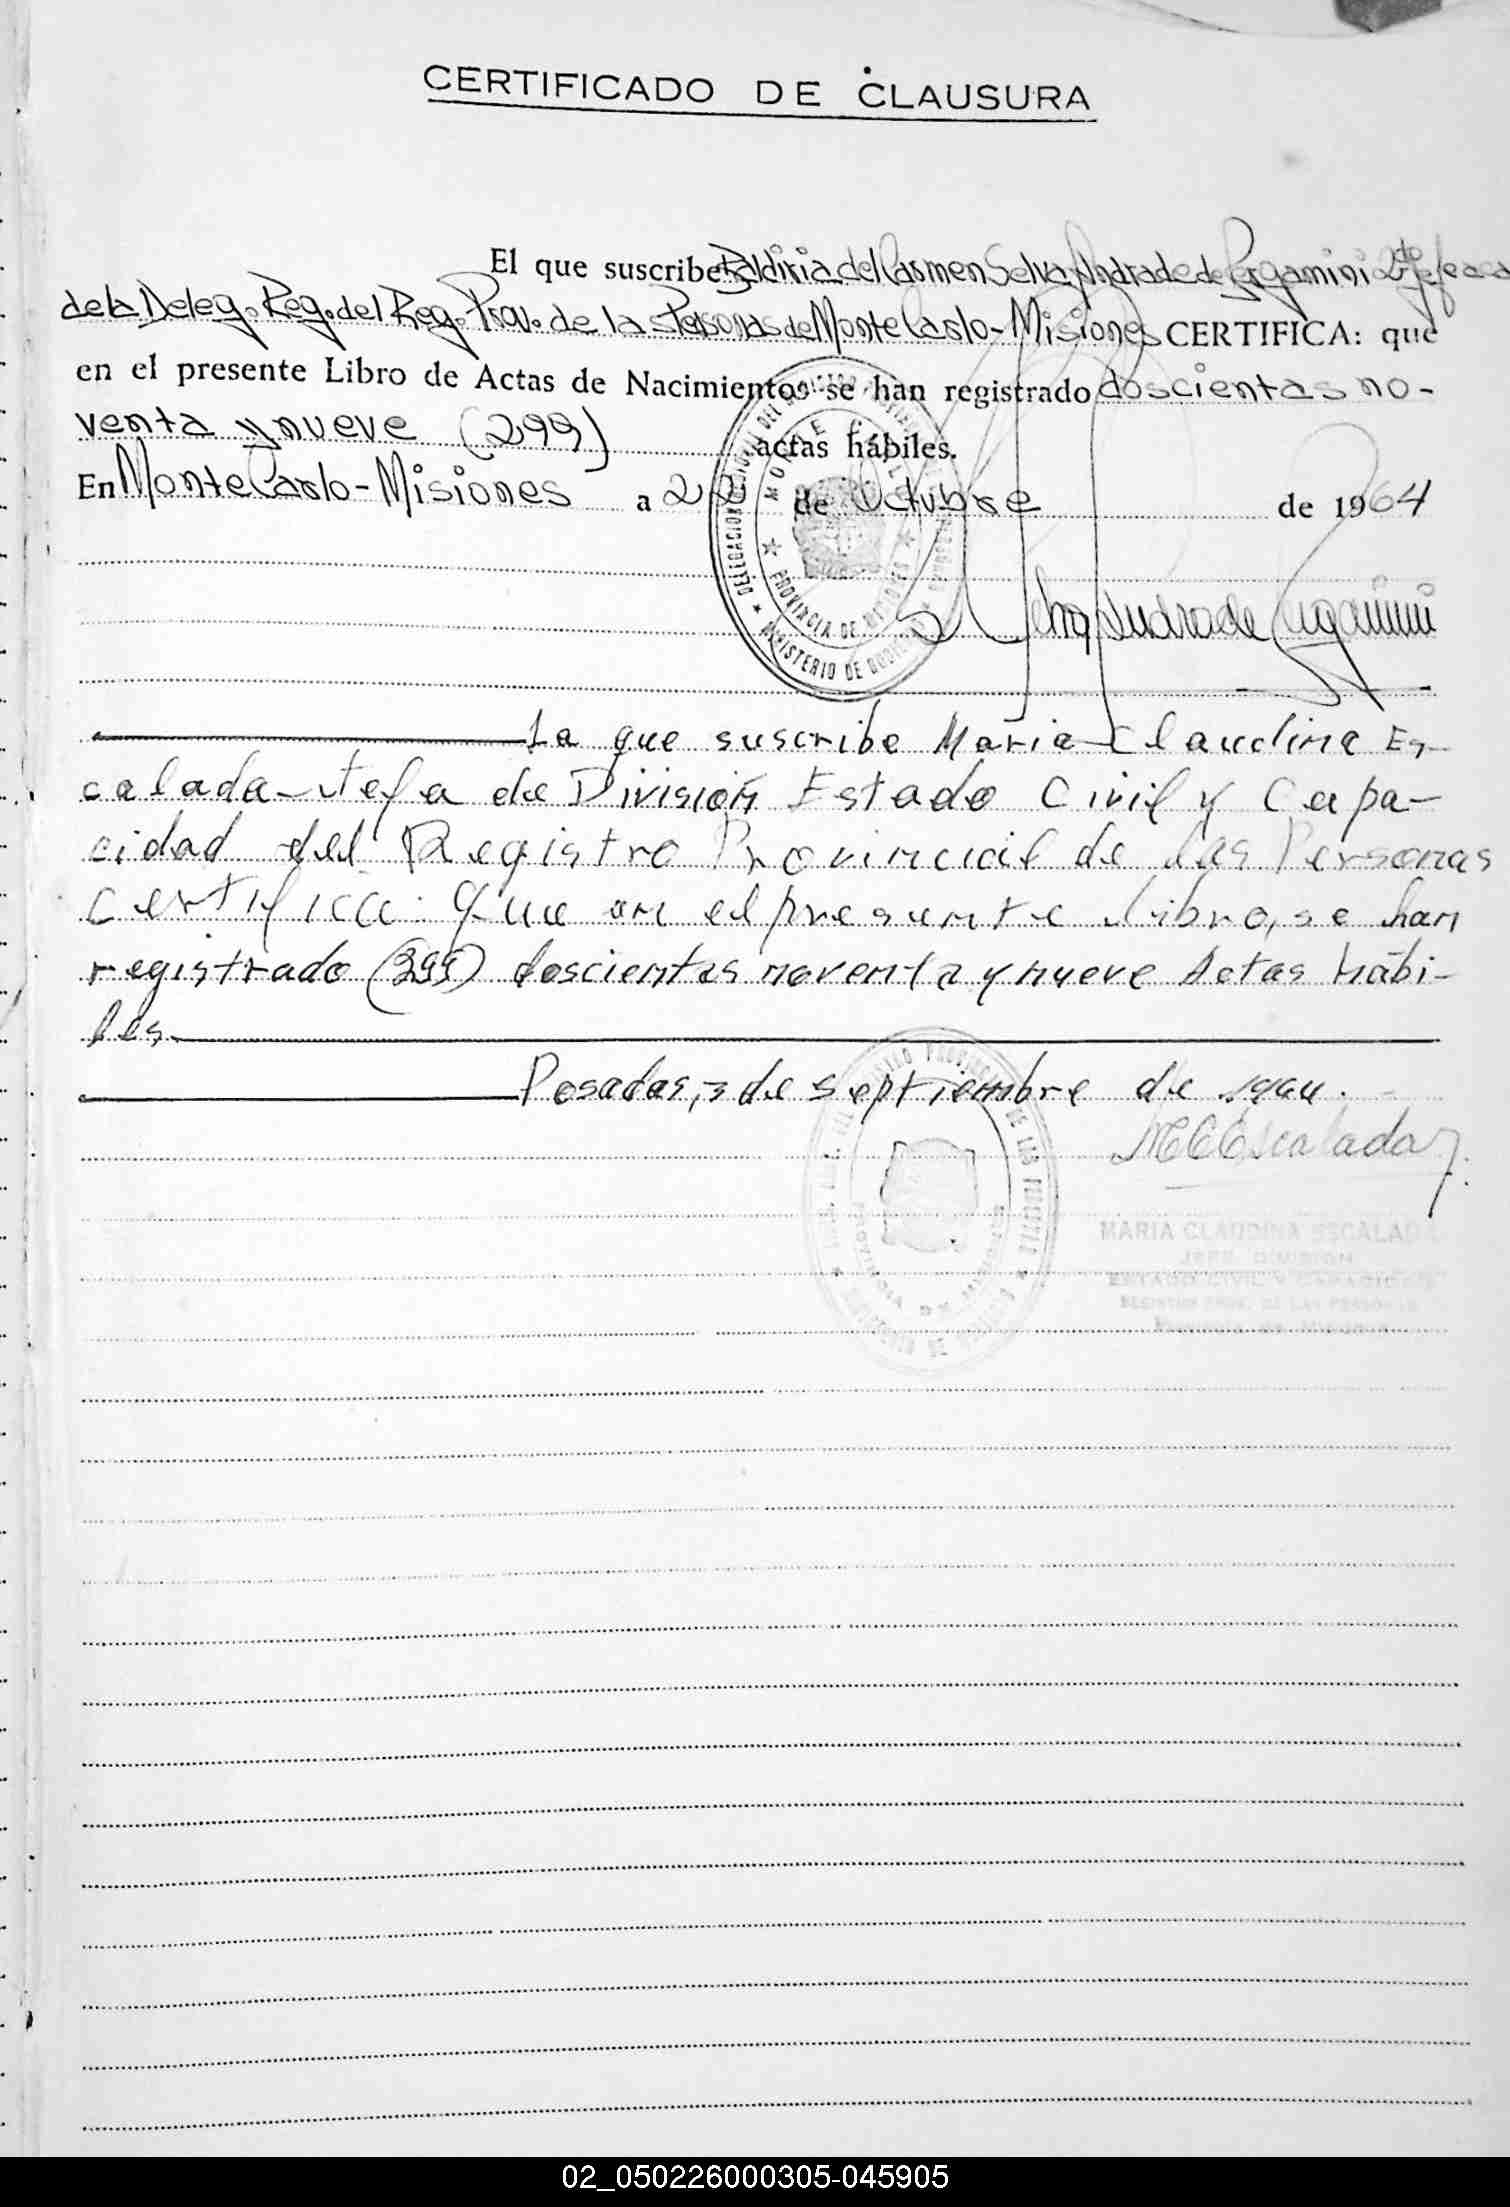 CERTIFICADO DE CLAUSURA
El que suscribe Baldiria del Carmen Selva Andrade de Pergamini 2º Jefe a ca
de la Deleg. Reg. del Reg. Prov. de las Personas de Monte Carlo-Misiones CERTIFICA: que
en el presente Libro de Actas de Nacimientos se han registrado doscientas no-
venta y nueve (299) actas hábiles.
En Monte Carlo-Misiones a 22 de Octubre de 1964
DELEGACION REGIONAL DEL
MONTE CARLO
PROVINCIA DE MISIONES
MINISTERIO DE GOBIERNO
Selva Andrade Pergamini
La que suscribe Maria Claudina Es-
calada-Jefa de División Estado Civil y Capa-
cidad del Registro Provincial de las Personas
Certifica: Que en el presente libro, se han
registrado (299) doscientas noventa y nueve Actas hábi-
les.
Posadas, 3 de septiembre de 1964.
MCEscalada
PROVINCIAL DE LAS PERSONAS
PROVINCIA DE MISIONES
MINISTERIO DE GOBIERNO
MARIA CLAUDINA ESCALADA
JEFE DIVISION
ESTADO CIVIL Y CAPACIDAD
REGISTRO PROV. DE LAS PERSONAS
Provincia de Misiones
02_050226000305-045905